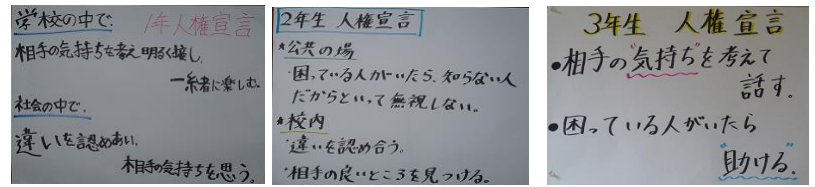 学校の中で.
1年人権宣言
相手の気持ちを考え明るく接し,
一緒に楽しむ.
社会の中で.
違いを認めあい,
相手の気持ちを思う。
2年生 人権宣言
*公共の場
・困っている人がいたら、知らない人
だからといって無視しない。
*校内
・違いを認め合う。
・相手の良いところを見つける。
3年生 人権宣言
●相手の"気持ち"を考えて
話す.
●困っている人がいたら
"助ける".